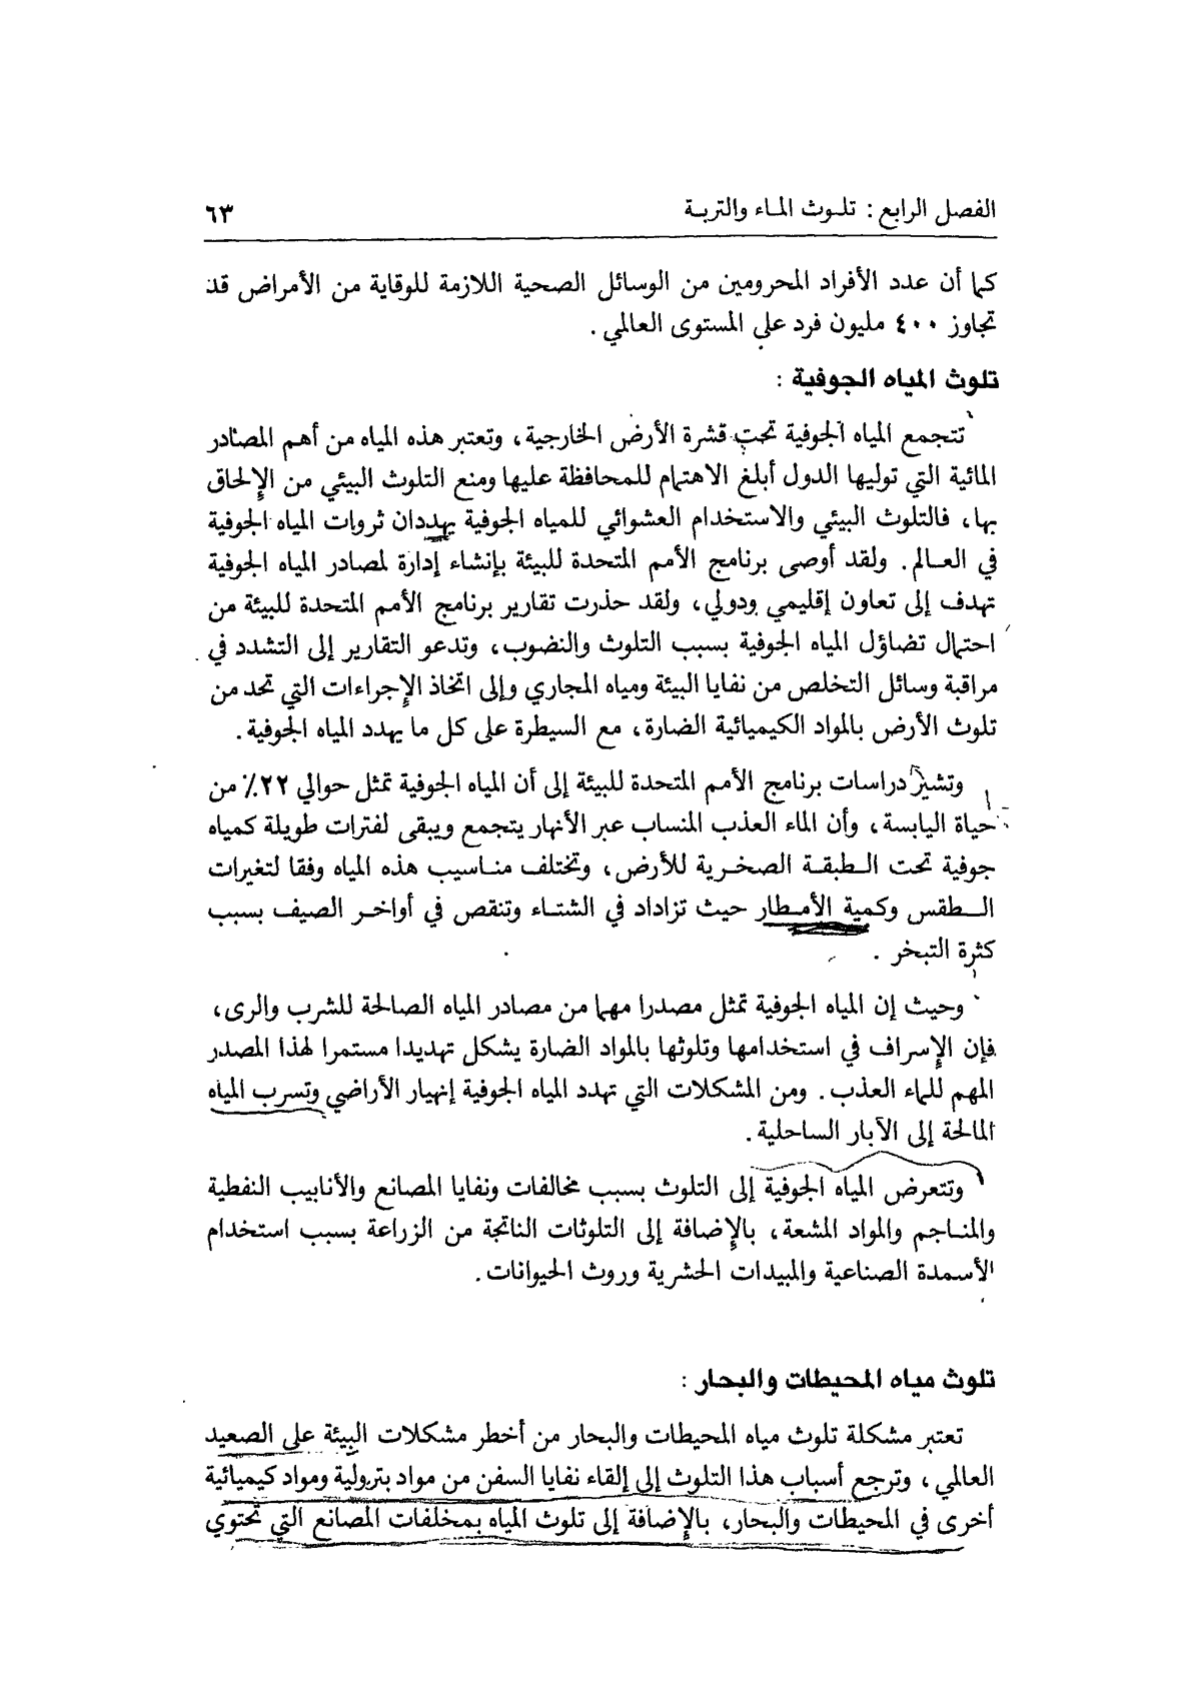 الفصل الرابع : تلوث الماء والتربة ٦٣
كما أن عدد الأفراد المحرومين من الوسائل الصحية اللازمة للوقاية من الأمراض قد
تجاوز ٤٠٠ مليون فرد على المستوى العالمي .
تلوث المياه الجوفية :
تتجمع المياه الجوفية تحت قشرة الأرض الخارجية، وتعتبر هذه المياه من أهم المصادر
المائية التي توليها الدول أبلغ الاهتمام للمحافظة عليها ومنع التلوث البيئي من الإلحاق
بها، فالتلوث البيئي والاستخدام العشوائي للمياه الجوفية يهددان ثروات المياه الجوفية
في العالم. ولقد أوصى برنامج الأمم المتحدة للبيئة بإنشاء إدارة لمصادر المياه الجوفية
تهدف إلى تعاون إقليمي ودولي، ولقد حذرت تقارير برنامج الأمم المتحدة للبيئة من
احتمال تضاؤل المياه الجوفية بسبب التلوث والنضوب، وتدعو التقارير إلى التشدد في
مراقبة وسائل التخلص من نفايا البيئة ومياه المجاري وإلى اتخاذ الإجراءات التي تحد من
تلوث الأرض بالمواد الكيميائية الضارة، مع السيطرة على كل ما يهدد المياه الجوفية.
وتشير دراسات برنامج الأمم المتحدة للبيئة إلى أن المياه الجوفية تمثل حوالي ٢٢٪ من
حياة اليابسة، وأن الماء العذب المنساب عبر الأنهار يتجمع ويبقى لفترات طويلة كمياه
جوفية تحت الطبقة الصخرية للأرض، وتختلف مناسيب هذه المياه وفقا لتغيرات
الطقس وكمية الأمطار حيث تزاداد في الشتاء وتنقص في أواخر الصيف بسبب
كثرة التبخر .
وحيث إن المياه الجوفية تمثل مصدرا مهما من مصادر المياه الصالحة للشرب والرى،
فإن الإسراف في استخدامها وتلوثها بالمواد الضارة يشكل تهديدا مستمرا لهذا المصدر
المهم للماء العذب. ومن المشكلات التي تهدد المياه الجوفية إنهيار الأراضي وتسرب المياه
المالحة إلى الآبار الساحلية.
وتتعرض المياه الجوفية إلى التلوث بسبب مخالفات ونفايا المصانع والأنابيب النفطية
والمناجم والمواد المشعة، بالإضافة إلى التلوثات الناتجة من الزراعة بسبب استخدام
الأسمدة الصناعية والمبيدات الحشرية وروث الحيوانات.
تلوث مياه المحيطات والبحار :
تعتبر مشكلة تلوث مياه المحيطات والبحار من أخطر مشكلات البيئة على الصعيد
العالمي، وترجع أسباب هذا التلوث إلى إلقاء نفايا السفن من مواد بترولية ومواد كيميائية
أخرى في المحيطات والبحار، بالإضافة إلى تلوث المياه بمخلفات المصانع التي تحتوي